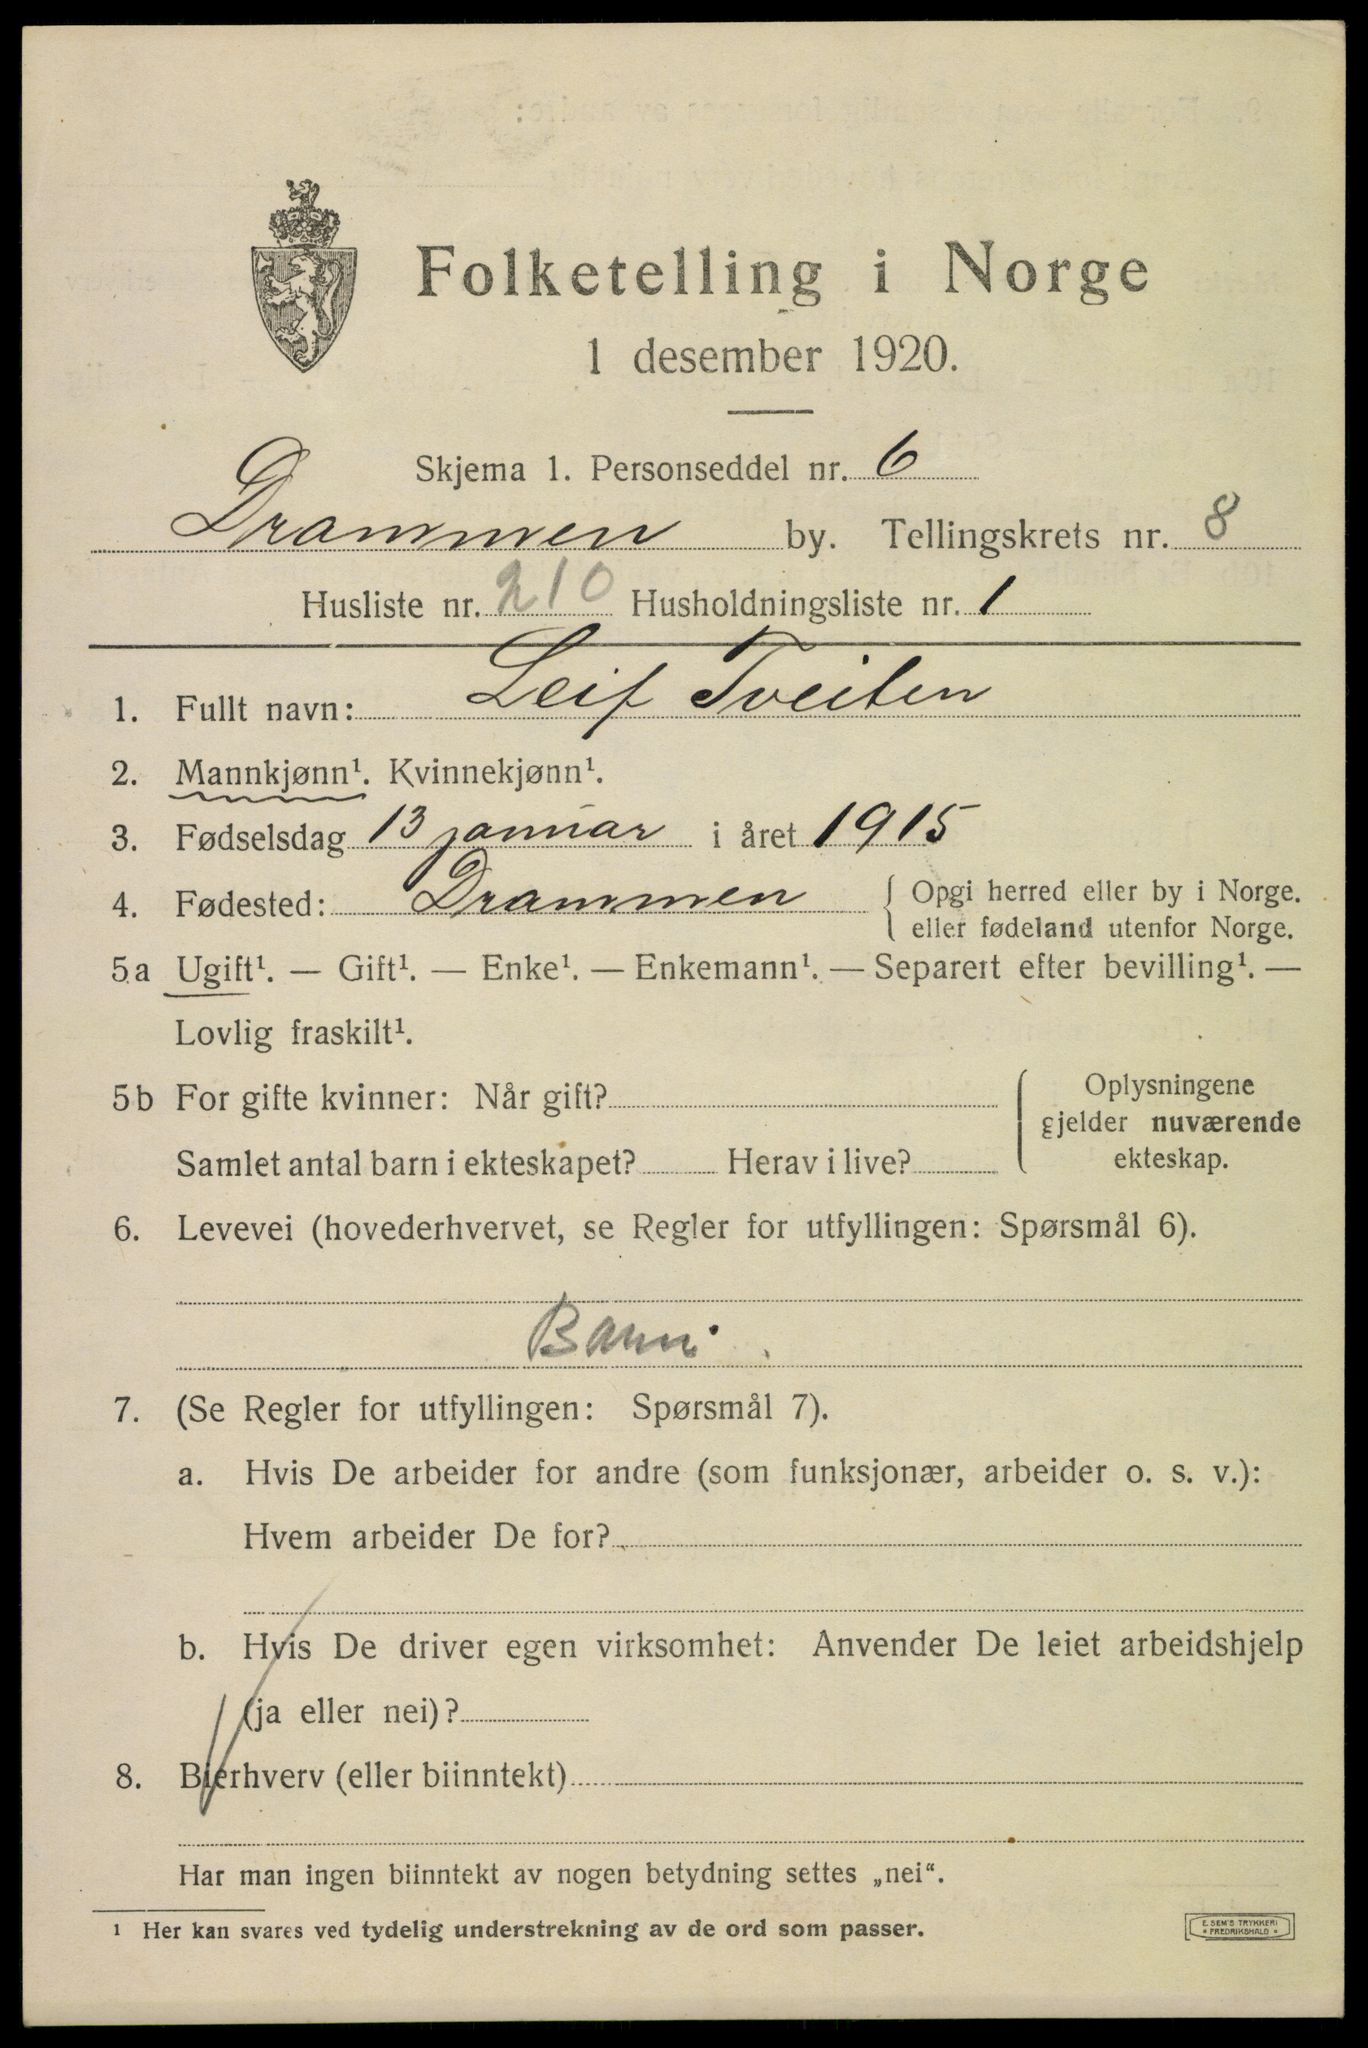 Folketelling i Norge
1 desember 1920.
Skjema 1. Personseddel nr. 6
Drammen by. Tellingskrets nr. 8
Husliste nr. 210 Husholdningsliste nr. 1
1. Fullt navn: Leif Tveiten
2. Mannkjønn¹. Kvinnekjønn¹.
3. Fødselsdag 13 januar i året 1915
4. Fødested: Drammen { Opgi herred eller by i Norge.
eller fødeland utenfor Norge.
5a Ugift¹. — Gift¹. — Enke¹. — Enkemann¹. — Separert efter bevilling¹. —
Lovlig fraskilt¹.
5b For gifte kvinner: Når gift?
Samlet antal barn i ekteskapet? Herav i live?
Oplysningene
gjelder nuværende
ekteskap.
6. Levevei (hovederhvervet, se Regler for utfyllingen: Spørsmål 6).
Barn
7. (Se Regler for utfyllingen: Spørsmål 7).
a. Hvis De arbeider for andre (som funksjonær, arbeider o. s. v.):
Hvem arbeider De for?
b. Hvis De driver egen virksomhet: Anvender De leiet arbeidshjelp
(ja eller nei)?
8. Bierhverv (eller biinntekt)
Har man ingen biinntekt av nogen betydning settes „nei“.
¹ Her kan svares ved tydelig understrekning av de ord som passer.
E. SEM'S TRYKKERI
FREDRIKSHALD